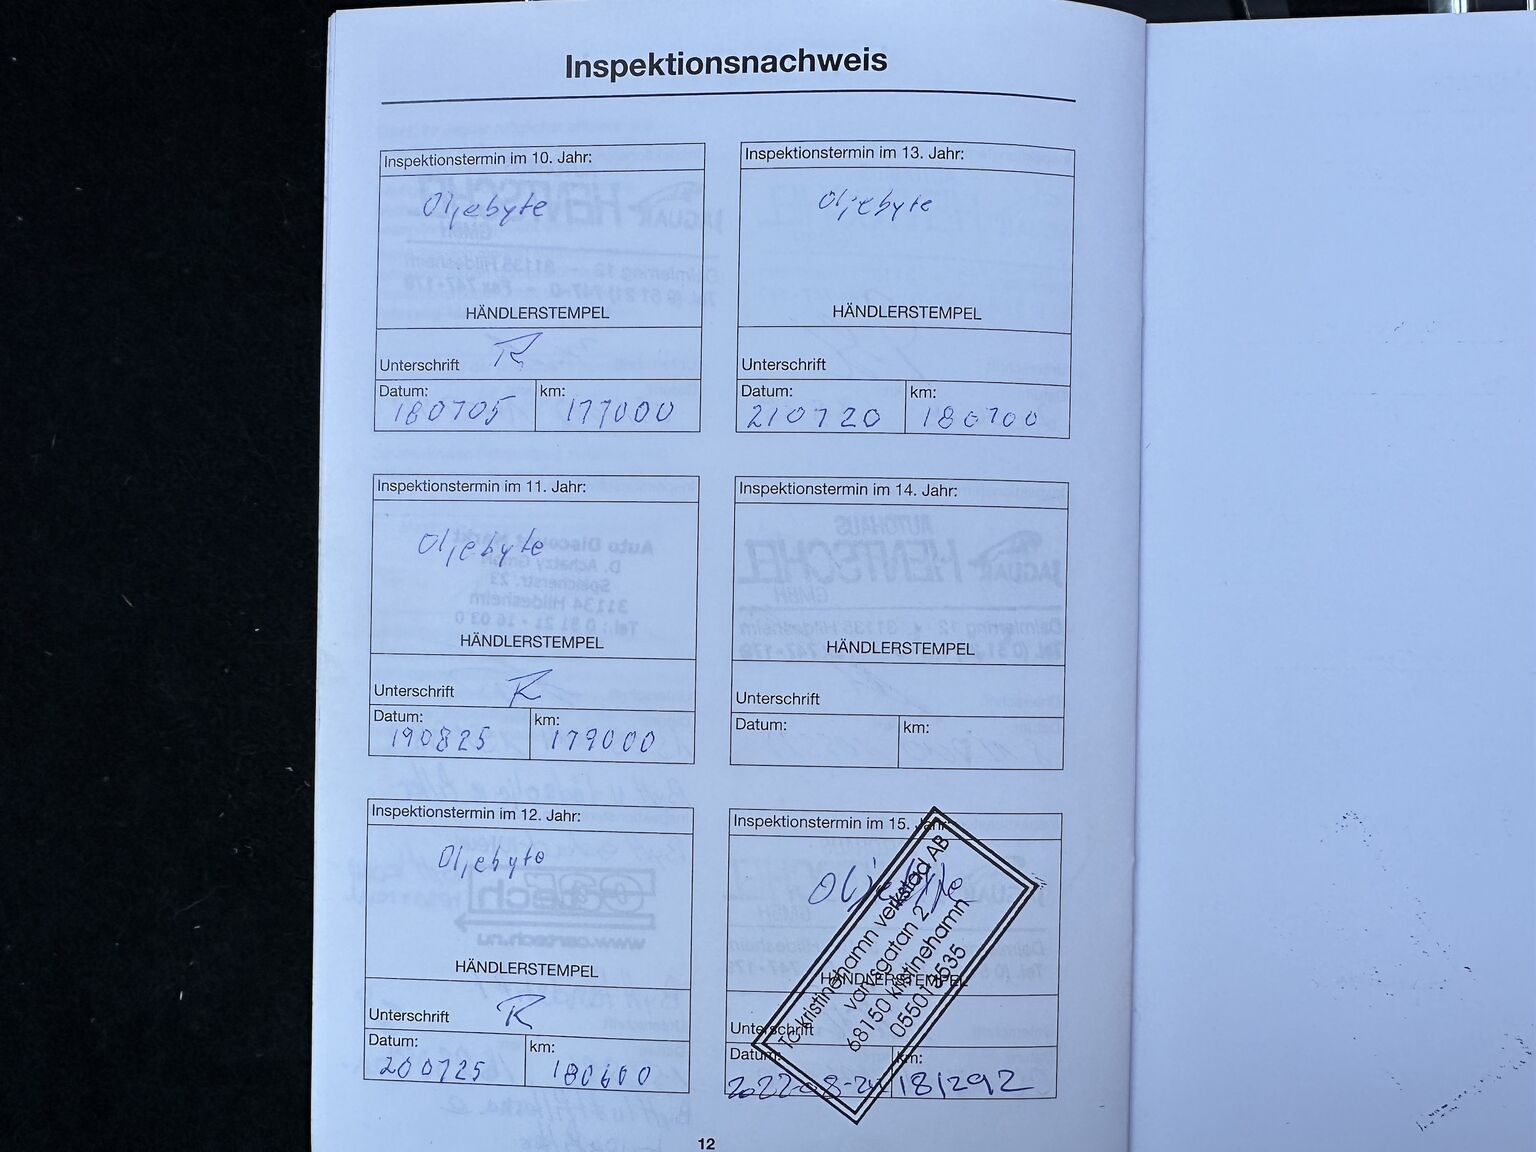 Inspektionsnachweis
Inspektionstermin im 10. Jahr:
Oljebyte
HÄNDLERSTEMPEL
Unterschrift R
Datum: km:
180705 177000
Inspektionstermin im 11. Jahr:
Oljebyte
HÄNDLERSTEMPEL
Unterschrift R
Datum: km:
190825 179000
Inspektionstermin im 12. Jahr:
Oljebyte
HÄNDLERSTEMPEL
Unterschrift R
Datum: km:
200725 180600
Inspektionstermin im 13. Jahr:
Oljebyte
HÄNDLERSTEMPEL
Unterschrift
Datum: km:
210720 180700
Inspektionstermin im 14. Jahr:
HÄNDLERSTEMPEL
Unterschrift
Datum: km:
Inspektionstermin im 15. Jahr:
HÄNDLERSTEMPEL
TC kristinehamn verkstad AB
68150 kristinehamn
Unterschrift
Datum: km:
181292
12